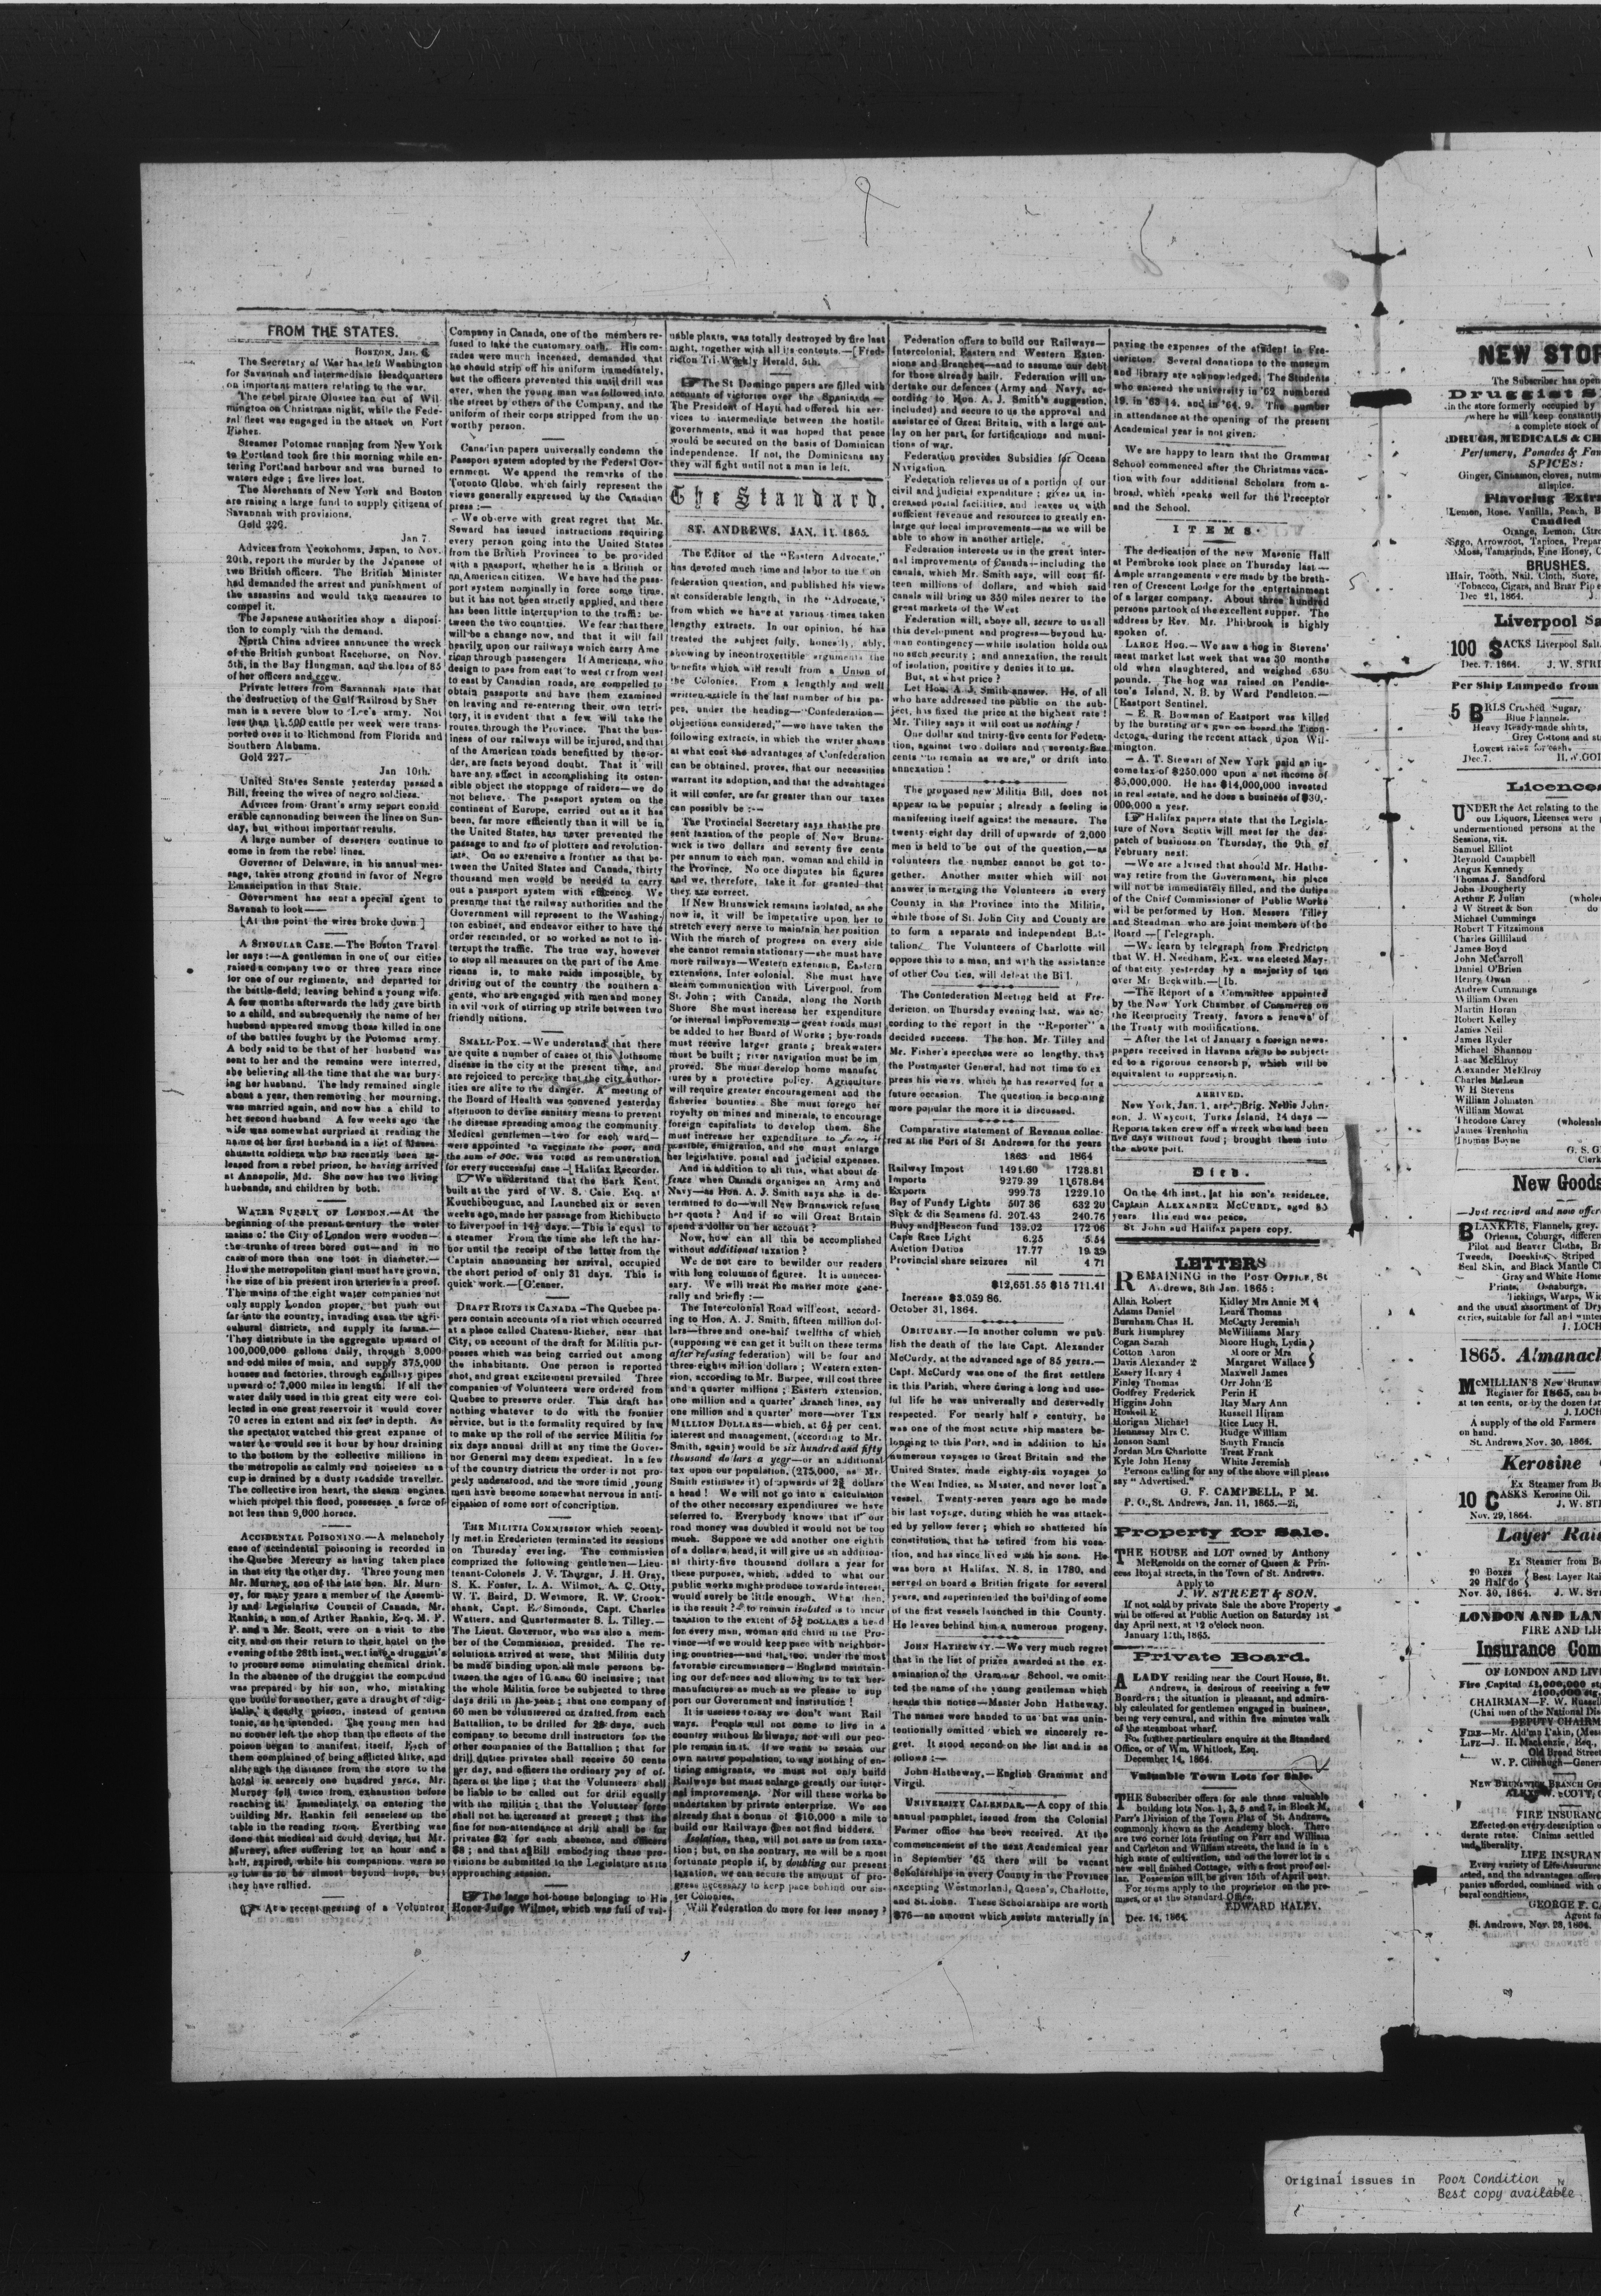 FROM THE STATES.
BOSTON, Jan. 6.
The Secretary of War has left Washington
for Savannah and intermediate Headquarters
on important matters relating to the war.
The rebel pirate Olustee ran out of Wil-
mington on Christmas night, while the Fede-
ral fleet was engaged in the attack on Fort
Fisher.
Steamer Potomac running from New York
to Portland took fire this morning while en-
tering Portland harbour and was burned to
waters edge; five lives lost.
The Merchants of New York and Boston
are raising a large fund to supply citizens of
Savannah with provisions.
Gold 226.
Jan 7.
Advices from Yeokohoma, Japan, to Nov.
20th, report the murder by the Japanese of
two British officers. The British Minister
had demanded the arrest and punishment of
the assassins and would take measures to
compel it.
The Japanese authorities show a disposi-
tion to comply with the demand.
North China advices announce the wreck
of the British gunboat Racehorse, on Nov.
5th, in the Bay Hungman, and the loss of 85
of her officers and crew.
Private letters from Savannah state that
the destruction of the Gulf Railroad by Sher
man is a severe blow to Lee's army. Not
less than 11,500 cattle per week were trans-
ported over it to Richmond from Florida and
Southern Alabama.
Gold 227.
Jan 10th.
United States Senate yesterday passed a
Bill, freeing the wives of negro soldiers.
Advices from Grant's army report consid
erable cannonading between the lines on Sun-
day, but without important results.
A large number of deserters continue to
come in from the rebel lines.
Governor of Delaware, in his annual mes-
sage, takes strong ground in favor of Negro
Emancipation in that State.
Government has sent a special agent to
Savanah to look——
[At this point the wires broke down.]
A SINGULAR CASE.—The Boston Travel
ler says:—A gentleman in one of our cities
raised a company two or three years since
for one of our regiments, and departed for
the battle-field, leaving behind a young wife.
A few months afterwards the lady gave birth
to a child, and subsequently the name of her
husband appeared among those killed in one
of the battles fought by the Potomac army.
A body said to be that of her husband was
sent to her and the remains were interred,
she believing all the time that she was bury-
ing her husband. The lady remained single
about a year, then removing her mourning,
was married again, and now has a child to
her second husband A few weeks ago the
wife was somewhat surprised at reading the
name of her first husband in a list of Massa-
chusetts soldiers who has recently been re-
leased from a rebel prison, he having arrived
at Annapolis, Md. She now has two living
husbands, and children by both.
WATER SUPPLY OF LONDON.—At the
beginning of the present century the water
mains of the City of London were wooden—
the trunks of trees bored out—and in no
case of more than one foot in diameter.—
How the metropolitan giant must have grown,
the size of his present iron arteries is a proof.
The mains of the eight water companies not
only supply London proper, but push out
far into the country, invading even the agri-
cultural districts, and supply its farms.—
They distribute in the aggregate upward of
100,000,000 gallons daily, through 3,000
and odd miles of main, and supply 375,000
houses and factories, through capillary pipes
upward of 7,000 miles in length. If all the
water daily used in this great city were col-
lected in one great reservoir it would cover
70 acres in extent and six feet in depth. As
the spectator watched this great expanse of
water he would see it hour by hour draining
to the bottom by the collective millions in
the metropolis as calmly and noiseless as a
cup is drained by a dusty roadside traveller.
The collective iron heart, the steam engines
which propel this flood, possesses a force of
not less than 9,000 horses.
ACCIDENTAL POISONING.—A melancholy
case of accindental poisoning is recorded in
the Quebec Mercury as having taken place
in that city the other day. Three young men
Mr. Murney, son of the late hon. Mr. Murn-
ey, for many years a member of the Assemb-
ly and Legislative Council of Canada, Mr.
Rankin, a son of Arther Rankin, Esq. M. P.
P. and a Mr. Scott, were on a visit to the
city, and on their return to their hotel on the
evening of the 28th inst., went into a druggist's
to procure some stimulating chemical drink.
In the absence of the druggist the compound
was prepared by his son, who, mistaking
one bottle for another, gave a draught of 'dig-
italis,' a deadly poison, instead of gentian
tonic, as he intended. The young men had
no sooner left the shop than the effects of the
poison began to manifest, itself, Each of
them complained of being afflicted alike, and
although the distance from the store to the
hotel is scarcely one hundred yards, Mr.
Murney fell twice from exhaustion before
reaching it. Immediately on entering the
building Mr. Rankin fell senseless on the
table in the reading room. Everthing was
done that medical aid could devise, but Mr.
Murney, after suffering for an hour and a
half, expired, while his companions were so
so low as to be almost beyond hope, but
they have rallied.
At a recent meeting of a Volunteer
Company in Canada, one of the members re-
fused to take the customary oath. His com-
rades were much incensed, demanded that
he should strip off his uniform immediately,
but the officers prevented this until drill was
over, when the young man was followed into
the street by others of the Company, and the
uniform of their corps stripped from the un-
worthy person.
Canadian papers universally condemn the
Passport system adopted by the Federal Gov-
ernment. We append the remarks of the
Toronto Globe, which fairly represent the
views generally expressed by the Canadian
press:—
We observe with great regret that Mr.
Seward has issued instructions requiring
every person going into the United States
from the British Provinces to be provided
with a passport, whether he is a British or
an American citizen. We have had the pass-
port system nominally in force some time,
but it has not been strictly applied, and there
has been little interruption to the traffic be-
tween the two countries. We fear that there
will be a change now, and that it will fall
heavily upon our railways which carry Ame
rican through passengers If Americans, who
design to pass from east to west or from west
to east by Canadian roads, are compelled to
obtain passports and have them examined
on leaving and re-entering their own terri-
tory, it is evident that a few will take the
routes through the Province. That the bus-
iness of our railways will be injured, and that
of the American roads benefitted by the or-
der, are facts beyond doubt. That it will
have any effect in accomplishing its osten-
sible object the stoppage of raiders—we do
not believe. The passport system on the
continent of Europe, carried out as it has
been, far more efficiently than it will be in
the United States, has never prevented the
passage to and fro of plotters and revolution-
ists. On so extensive a frontier as that be-
tween the United States and Canada, thirty
thousand men would be needed to carry
out a passport system with efficency. We
presume that the railway authorities and the
Government will represent to the Washing-
ton cabinet, and endeavor either to have the
order rescinded, or so worked as not to in-
tercupt the traffic. The true way, however
to stop all measures on the part of the Ame
ricans is, to make raids impossible, by
driving out of the country the southern a-
gents, who are engaged with men and money
in evil work of stirring up strife between two
friendly nations.
SMALL-POX.—We understand that there
are quite a number of cases of this lothsome
disease in the city at the present time, and
are rejoiced to perceive that the city author-
ities are alive to the danger. A meeting of
the Board of Health was convened yesterday
afternoon to devise sanitary means to prevent
the disease spreading among the community.
Medical gentlemen—two for each ward—
were appointed to vaccinate the poor, and
the sum of 50c. was voted as remuneration
for every successful case—[Halifax Recorder.
We understand that the Bark Kent,
built at the yard of W. S. Caie, Esq. at
Kouchibouguac, and Launched six or seven
weeks ago, made her passage from Richibucto
to Liverpool in 14½ days.—This is equal to
a steamer From the time she left the har-
bor until the receipt of the letter from the
Captain announcing her arrival, occupied
the short period of only 31 days. This is
quick work.—[Gleaner.
DRAFT RIOTS IN CANADA—The Quebec pa-
pers contain accounts of a riot which occurred
at a place called Chateau-Richer, near that
City, on account of the draft for Militia pur-
posses which was being carried out among
the inhabitants. One person is reported
shot, and great excitement prevailed Three
companies of Volunteers were ordered from
Quebec to preserve order. This draft has
nothing whatever to do with the frontier
service, but is the formality required by law
to make up the roll of the service Militia for
six days annual drill at any time the Gover-
nor General may deem expedient. In a few
of the country districts the order is not pro-
perly understood, and the more timid young
men have become somewhat nervous in anti-
cipation of some sort of concription.
THE MILITIA COMMISSION which recent-
ly met in Fredericten terminated its sessions
on Thursday evening. The commission
comprized the following gentlemen—Lieu-
tenant-Colonels J. V. Thurgar, J. H. Gray,
S. K. Foster, L. A. Wilmot, A. C. Otty,
W. T. Baird, D. Wetmore, R. W. Crook-
shank, Capt. E. Simonds, Capt. Charles
Watters, and Quartermaster S. L. Tilley.—
The Lieut. Governor, who was also a mem-
ber of the Commission, presided. The re-
solutions arrived at were, that Militia duty
be made binding upon all male persons be-
tween the ages of 16 and 60 inclusive; that
the whole Militia force be subjected to three
days drill in the year; that one company of
60 men be volunteered or drafted from each
Battalion, to be drilled for 28 days, such
company to become drill instructors for the
other companies of the Battallion; that for
drill duties privates shall receive 50 cents
per day, and officers the ordinary pay of of-
ficers of the line; that the Volunteers shall
be liable to be called out for drill equally
with the militia; that the Volunteer force
shall not be increased at present; that the
fine for non-attendance at drill shall be for
privates $2 for each absence, and officers
$8; and that a Bill embodying these pro-
visions be submitted to the Legislature at its
approaching session.
The large hot-house belonging to His
Honor Judge Wilmot, which was full of val-
uable plants, was totally destroyed by fire last
night, together with all its contents.—[Fred-
ricton Tri-Weekly Herald, 5th.
The St Domingo papers are filled with
accounts of victories over the Spaniards—
The President of Hayti had offered his ser-
vices to intermediate between the hostile
governments, and it was hoped that peace
would be secured on the basis of Dominican
independence. If not, the Dominicans say
they will fight until not a man is left.
The Standard.
ST. ANDREWS, JAN. 11. 1865.
The Editor of the "Eastern Advocate,"
has devoted much time and labor to the Con
federation question, and published his views
at considerable length, in the "Advocate,"
from which we have at various times taken
lengthy extracts. In our opinion, he has
treated the subject fully, honestly, ably,
showing by incontrovertible arguments the
benefits which will result from a Union of
the Colonies. From a lengthly and well
written article in the last number of his pa-
per, under the heading—"Confederation—
objections considered,"—we have taken the
following extracts, in which the writer shows
at what cost the advantages of Confederation
can be obtained, proves, that our necessities
warrant its adoption, and that the advantages
it will confer, are far greater than our taxes
can possibly be:—
The Provincial Secretary says that the pre
sent taxation of the people of New Bruns-
wick is two dollars and seventy five cents
per annum to each man, woman and child in
the Province. No one disputes his figures
and we, therefore, take it for granted that
they are correct.
If New Brunswick remains isolated, as she
now is, it will be imperative upon her to
stretch every nerve to maintain her position
With the march of progress on every side
she cannot remain stationary—she must have
more railways—Western extension, Eastern
extensions, Inter colonial. She must have
steam communication with Liverpool, from
St. John; with Canada, along the North
Shore She must increase her expenditure
for internal improvements—great roads must
be added to her Board of Works; bye-roads
must receive larger grants; breakwaters
must be built; river navigation must be im
proved. She must develop home manufac
tures by a protective policy. Agriculture
will require greater encouragement and the
fisheries bounties. She must forego her
royalty on mines and minerals, to encourage
foreign capitalists to develop them. She
must increase her expenditure to force if
possible, emigration, and she must enlarge
her legislative, postal and judicial expenses.
And in addition to all this, what about de-
fence when Canada organizes an Army and
Navy—as Hon. A. J. Smith says she is de-
termined to do—will New Brunswick refuse
her quota? And if so will Great Britain
spend a dollar on her account?
Now, how can all this be accomplished
without additional taxation?
We do not care to bewilder our readers
with long columns of figures. It is unneces-
sary. We will treat the matter more gene-
rally and briefly:—
The Intercolonial Road will cost, accord-
ing to Hon. A. J. Smith, fifteen million dol-
lars—three and one-half twelfths of which
(supposing we can get it built on these terms
after refusing federation) will be four and
three-eights million dollars; Western exten-
sion, according to Mr. Burpee, will cost three
and a quarter millions; Eastern extension,
one million and a quarter' Branch lines, say
one million and a quarter' more—over TEN
MILLION DOLLARS—which, at 6½ per cent.
interest and management, (according to Mr.
Smith, again) would be six hundred and fifty
thousand dollars a year—or an additional
tax upon our population, (275,000, as Mr.
Smith estimates it) of upwards of 2⅜ dollars
a head! We will not go into a calculation
of the other necessary expenditures we have
referred to. Everybody knows that if our
road money was doubled it would not be too
much. Suppose we add another one eighth
of a dollar a head, it will give us an addition-
al thirty-five thousand dollars a year for
these purposes, which, added to what our
public works might produce towards interest,
would surely be little enough. What then,
is the result? to remain isolated is to incur
taxation to the extent of 5¼ DOLLARS a head
for every man, woman and child in the Pro-
vince—if we would keep pace with neighbor-
ing countries—and that, too, under the most
favorable circumstances—England maintain-
ing our defences and allowing us to tax her
manufactures as much as we please to sup
port our Government and institution!
It is useless to say we don't want Rail
ways. People will not come to live in a
country without Railways, nor will our peo-
ple remain in it. If we want to retain our
own native population, to say nothing of en-
ticing emigrants, we must not only build
Railways but must enlarge greatly our inter-
nal improvements. Nor will these works be
undertaken by private enterprize. We see
already that a bonus of $10,000 a mile to
build our Railways does not find bidders.
Isolation, than, will not save us from taxa-
tion; but, on the contrary, we will be a most
fortunate people if, by doubling our present
taxation, we can secure the amount of pro-
gress necessary to keep pace behind our sis-
ter Colonies.
Will Federation do more for less money?
Federation offers to build our Railways—
Intercolonial, Eastern and Western Exten-
sions and Branches—and to assume our debt
for those already built. Federation will un-
dertake our defences (Army and Navy, ac-
cording to Hon. A. J. Smith's suggestion,
included) and secure to us the approval and
assistance of Great Britain, with a large out-
lay on her part, for fortifications and muni-
tions of war.
Federation provides Subsidies for Ocean
Navigation.
Federation relieves us of a portion of our
civil and judicial expenditure; gives us in-
creased postal facilities, and leaves us with
sufficient revenue and resources to greatly en-
large our local improvements—as we will be
able to show in another article.
Federation interests us in the great inter-
nal improvements of Canada—including the
canals, which Mr. Smith says, will cost fif-
teen millions of dollars, and which said
canals will bring us 350 miles nearer to the
great markets of the West
Federation will, above all, secure to us all
this development and progress—beyond hu-
man contingency—while isolation holds out
no such security; and annexation, the result
of isolation, positive y denies it to us.
But, at what price?
Let Hon. A. J. Smith answer. He, of all
who have addressed the public on the sub-
ject, has fixed the price at the highest rate!
Mr. Tilley says it will cost us nothing!
One dollar and thirty-five cents for Federa-
tion, against two dollars and seventy-five
cents "to remain as we are," or drift into
annexation!
The proposed new Militia Bill, does not
appear to be popular; already a feeling is
manifesting itself against the measure. The
twenty-eight day drill of upwards of 2,000
men is held to be out of the question,—as
volunteers the number cannot be got to-
gether. Another matter which will not
answer is merging the Volunteers in every
County in the Province into the Militia,
while those of St. John City and County are
to form a separate and independent Bat-
talion. The Volunteers of Charlotte will
oppose this to a man, and with the assistance
of other Cou ties, will defeat the Bill.
The Confederation Meeting held at Fre-
dericton, on Thursday evening last, was ac-
cording to the report in the "Reporter" a
decided success. The hon. Mr. Tilley and
Mr. Fisher's speeches were so lengthy, that
the Postmaster General, had not time to ex
press his views, which he has reserved for a
future occasion. The question is becoming
more popular the more it is discussed.
Comparative statement of Revenue collec-
ted at the Port of St Andrews for the years
1863 and 1864
Railway Impost 1491.60 1728.81
Imports 9279.39 11,678.84
Exports 999.73 1229.10
Bay of Fundy Lights 507 36 632 20
Sick & dis Seamens fd. 207.43 240.76
Buoy and Beacon fund 139.02 172 06
Cape Race Light 6.25 5.54
Auction Duties 17.77 19 29
Provincial share seizures nil 4 71
$12,651.55 $15 711.41
Increase $3.059 86.
October 31, 1864.
OBITUARY.—In another column we pub
lish the death of the late Capt. Alexander
McCurdy, at the advanced age of 85 years.—
Capt. McCurdy was one of the first settlers
in this Parish, where during a long and use-
ful life he was universally and deservedly
respected. For nearly half a century, he
was one of the most active ship masters be-
longing to this Port, and in addition to his
numerous voyages to Great Britain and the
United States, made eighty-six voyages to
the West Indies, as Master, and never lost a
vessel. Twenty-seven years ago he made
his last voyage, during which he was attack-
ed by yellow fever; which so shattered his
constitution, that he retired from his voca-
tion, and has since lived with his sons. He
was born at Halifax, N. S. in 1780, and
served on board a British frigate for several
years, and superintended the building of some
of the first vessels launched in this County.
He leaves behind him a numerous progeny.
JOHN HATHEWAY.—We very much regret
that in the list of prizes awarded at the ex-
amination of the Grammar School, we omit-
ted the name of the young gentleman which
heads this notice—Master John Hathaway.
The names were handed to us but was unin-
tentionally omitted which we sincerely re-
gret. It stood second on the list and is as
follows:—
John Hathaway,—English Grammar and
Virgil.
UNIVERSITY CALENDAR.—A copy of this
annual pamphlet, issued from the Colonial
Farmer office has been received. At the
commencement of the next Academical year
in September '65 there will be vacant
Scholarships in every County in the Province
excepting Westmorland, Queen's, Charlotte,
and St. John. These Scholarships are worth
$76—an amount which assists materially in
paying the expenses of the student in Fre-
dericton. Several donations to the museum
and library are acknowledged. The Students
who entered the university in '62 numbered
19, in '63 14. and in '64. 9. The number
in attendance at the opening of the present
Academical year is not given.
We are happy to learn that the Grammar
School commenced after the Christmas vaca-
tion with four additional Scholars from a-
broad, which speaks well for the Preceptor
and the School.
ITEMS.
The dedication of the new Masonic Hall
at Pembroke took place on Thursday last—
Ample arrangements were made by the breth-
ren of Crescent Lodge for the entertainment
of a larger company. About three hundred
persons partook of the excellent supper. The
address by Rev. Mr. Philbrook is highly
spoken of.
LARGE HOG.—We saw a hog in Stevens'
meat market last week that was 30 months
old when slaughtered, and weighed 650
pounds. The hog was raised on Pendle-
ton's Island, N. B. by Ward Pendleton.—
[Eastport Sentinel.
— E. R. Bowman of Eastport was killed
by the bursting of a gun on board the Ticon-
deroga, during the recent attack upon Wil-
mington.
— A. T. Stewart of New York paid an in-
come tax of $250,000 upon a net income of
$5,000,000. He has $14,000,000 invested
in real estate, and he does a business of $30,-
000,000 a year.
Halifax papers state that the Legisla-
ture of Nova Scotia will meet for the des-
patch of business on Thursday, the 9th of
February next.
—We are advised that should Mr. Hathe-
way retire from the Government, his place
will not be immediately filled, and the duties
of the Chief Commissioner of Public Works
will be performed by Hon. Messrs Tilley
and Steadman who are joint members of the
Board—[Telegraph.
—We learn by telegraph from Fredricton
that W. H. Needham, Esx. was elected May-
or of that city yesterday by a majority of ten
over Mr Beckwith.—[Ib.
—The Report of a Committee appointed
by the New York Chamber of Commerce on
the Reciprocity Treaty, favors a renewal of
the Treaty with modifications.
— After the 1st of January a foreign news-
papers received in Havana are to be subject-
ed to a rigorous censorship, which will be
equivalent to suppression.
ARRIVED.
New York, Jan. 1, arr., Brig. Nellie John-
son, J. Waycott, Turks Island, 14 days—
Reports taken crew off a wreck who had been
five days without food; brought them into
the above port.
Died.
On the 4th inst., [at his son's residence,
Captain ALEXANDER MCCURDY, aged 85
years His end was peace.
St John and Halifax papers copy.
LETTERS
REMAINING in the POST OFFICE, St
Andrews, 8th Jan. 1865:
Allan Robert Kidley Mrs Annie M 4
Adams Daniel Leard Thomas
Burnham Chas H. McCarty Jeremiah
Burk Humphrey McWilliams Mary
Cogan Sarah Moore Hugh, Lydia
Cotton Aaron Moore or Mrs
Davis Alexander 2 Margaret Wallace
Essery Henry 4 Maxwell James
Finley Thomas Orr John E
Godfrey Frederick Perin H
Higgins John Ray Mary Ann
Hoskell E Russell Hiram
Horigan Michael Rice Lucy H.
Hennessy Mrs C. Rudge William
Jonson Saml Smyth Francis
Jordan Mrs Charlotte Treat Frank
Kyle John Henry White Jeremiah
Persons calling for any of the above will please
say "Advertised."
G. F. CAMPBELL, P M.
P. O., St. Andrews, Jan. 11, 1865.—2i,
Property for Sale.
THE HOUSE and LOT owned by Anthony
McRenolds on the corner of Queen & Prin-
cess Royal streets, in the Town of St. Andrews.
Apply to
J. W. STREET & SON.
If not sold by private Sale the above Property
will be offered at Public Auction on Saturday 1st
day April next, at 12 o'clock noon.
January 11th, 1865.
Private Board.
A LADY residing near the Court House, St.
Andrews, is desirous of receiving a few
Boarders; the situation is pleasant, and admira-
bly calculated for gentlemen engaged in business,
being very central, and within five minutes walk
of the steamboat wharf.
For further particulars enquire at the Standard
Office, or of Wm. Whitlock, Esq.
December 14, 1864.
Valuable Town Lots for Sale.
THE Subscriber offers for sale those valuable
building lots Nos. 1, 3, 5 and 7, in Block M,
Parr's Division of the Town Plat of St. Andrews,
commonly known as the Academy block. There
are two corner lots fronting on Parr and William
and Carleton and William streets, the land is in a
high state of cultivation, and on the lower lot is a
new well finished Cottage, with a frost proof cel-
lar. Possession will be given 15th of April next.
For terms apply to the proprietor on the pre-
mises, or at the Standard Office.
EDWARD HALEY.
Dec. 14, 1864.
NEW STOR
The Subscriber has open
Druggist S
in the store formerly occupied by
where he will keep constantly
a complete stock of
DRUGS, MEDICALS & CH
Perfumery, Pomades & Fan
SPICES:
Ginger, Cinnamon, cloves, nutm
allspice.
Flavoring Extra
Lemon, Rose, Vanilla, Peach, B
Candied
Orange, Lemon, Citro
Sago, Arrowroot, Tapioca, Prepar
Moss, Tamarinds, Fine Honey, C
BRUSHES.
Hair, Tooth, Nail, Cloth, Stove,
Tobacco, Cigars, and Briar Pipe
Dec 21, 1864. J.
Liverpool Sa
100 SACKS Liverpool Salt.
Dec. 7. 1864. J. W. STRE
Per Ship Lampedo from
5 BRLS Crushed Sugar,
Blue Flannels.
Heavy Ready-made shirts,
Grey Cottons and st
Lowest rates for cash.
Dec. 7. H. W. GOI
Licences
UNDER the Act relating to the
ous Liquors, Licenses were
undermentioned persons at the
Sessions, viz.
Samuel Elliot
Reynold Campbell
Angus Kennedy
Thomas J. Sandford
John Dougherty
Arthur P. Julian (whole
J W Street & Son do
Michael Cummings
Robert T Fitzsimons
Charles Gilliland
James Boyd
John McCarroll
Daniel O'Brien
Henry Owan
Andrew Cummings
William Owen
Martin Horan
Robert Kelley
James Neil
James Ryder
Michael Shannon
Isaac McElroy
Alexander McElroy
Charles McLean
W H Stevens
William Johnston
William Mowat
Theodore Carey (wholesale
James Trenholm
Thomas Boyne
G. S. G
Clerk
New Goods
—Just received and now offer
BLANKETS, Flannels, grey.
Orleans, Coburgs, differen
Pilot and Beaver Cloths, Br
Tweeds, Doeskins, Striped
Seal Skin, and Black Mantle Cl
Gray and White Home
Prints, Osnaburgs,
Tickings, Warps, Wic
and the usual assortment of Dry
ceries, suitable for fall and winter
J. LOCH
1865. Almanack
McMILLIAN'S New Brunsw
Register for 1865, can be
at ten cents, or by the dozen for
J. LOCH
A supply of the old Farmers
on hand.
St. Andrews Nov. 30, 1864.
Kerosine
Ex Steamer from Bo
10 CASKS Kerosine Oil.
J. W. STI
Nov. 29, 1864.
Layer Rais
Ex Steamer from Bo
20 Boxes
20 Half do Best Layer Rai
Nov. 30, 1864. J. W. ST
LONDON AND LAN
FIRE AND LIF
Insurance Com
OF LONDON AND LIV
Fire Capital £1,000,000 stg
£100,000 stg.
CHAIRMAN—F. W. Russell
(Chairmen of the National Dis
DEPUTY CHAIRM
FIRE—Mr. Ald'mn Lakin, (Mess
LIFE—J. H. Mackenzie, Esq.,
Old Broad Street
W. P. Clirehugh—Gener
NEW BRUNSWICK BRANCH OFF
ALEX. W. SCOTT, C
FIRE INSURANC
Effected on every description o
derate rates. Claims settled
and liberality.
LIFE INSURAN
Every variety of Life Assuranc
acted, and the advantages offere
panies afforded, combined with o
beral conditions,
GEORGE F. CA
Agent fo
St. Andrews, Nov. 28, 1864.
Original issues in Poor Condition
Best copy available